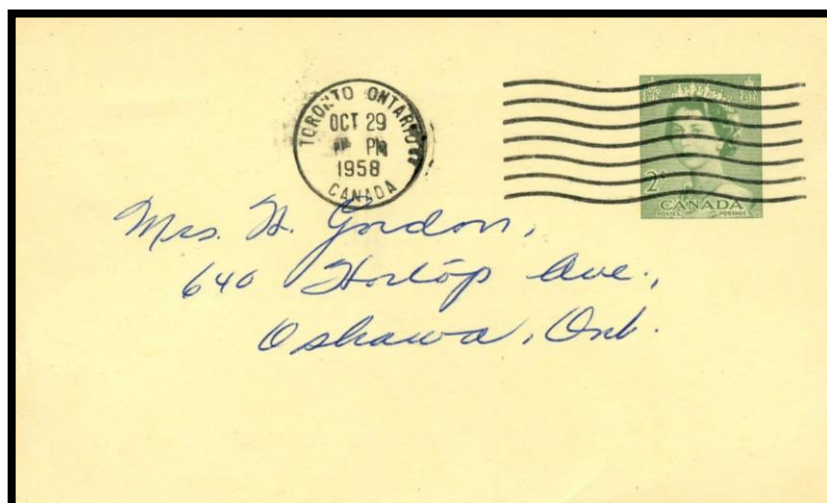 TORONTO ONTARIO
OCT 29
PM
1958
CANADA
2¢
CANADA
POSTES POSTAGE
Mrs. H. Gordon,
640 Hortop Ave.,
Oshawa, Ont.